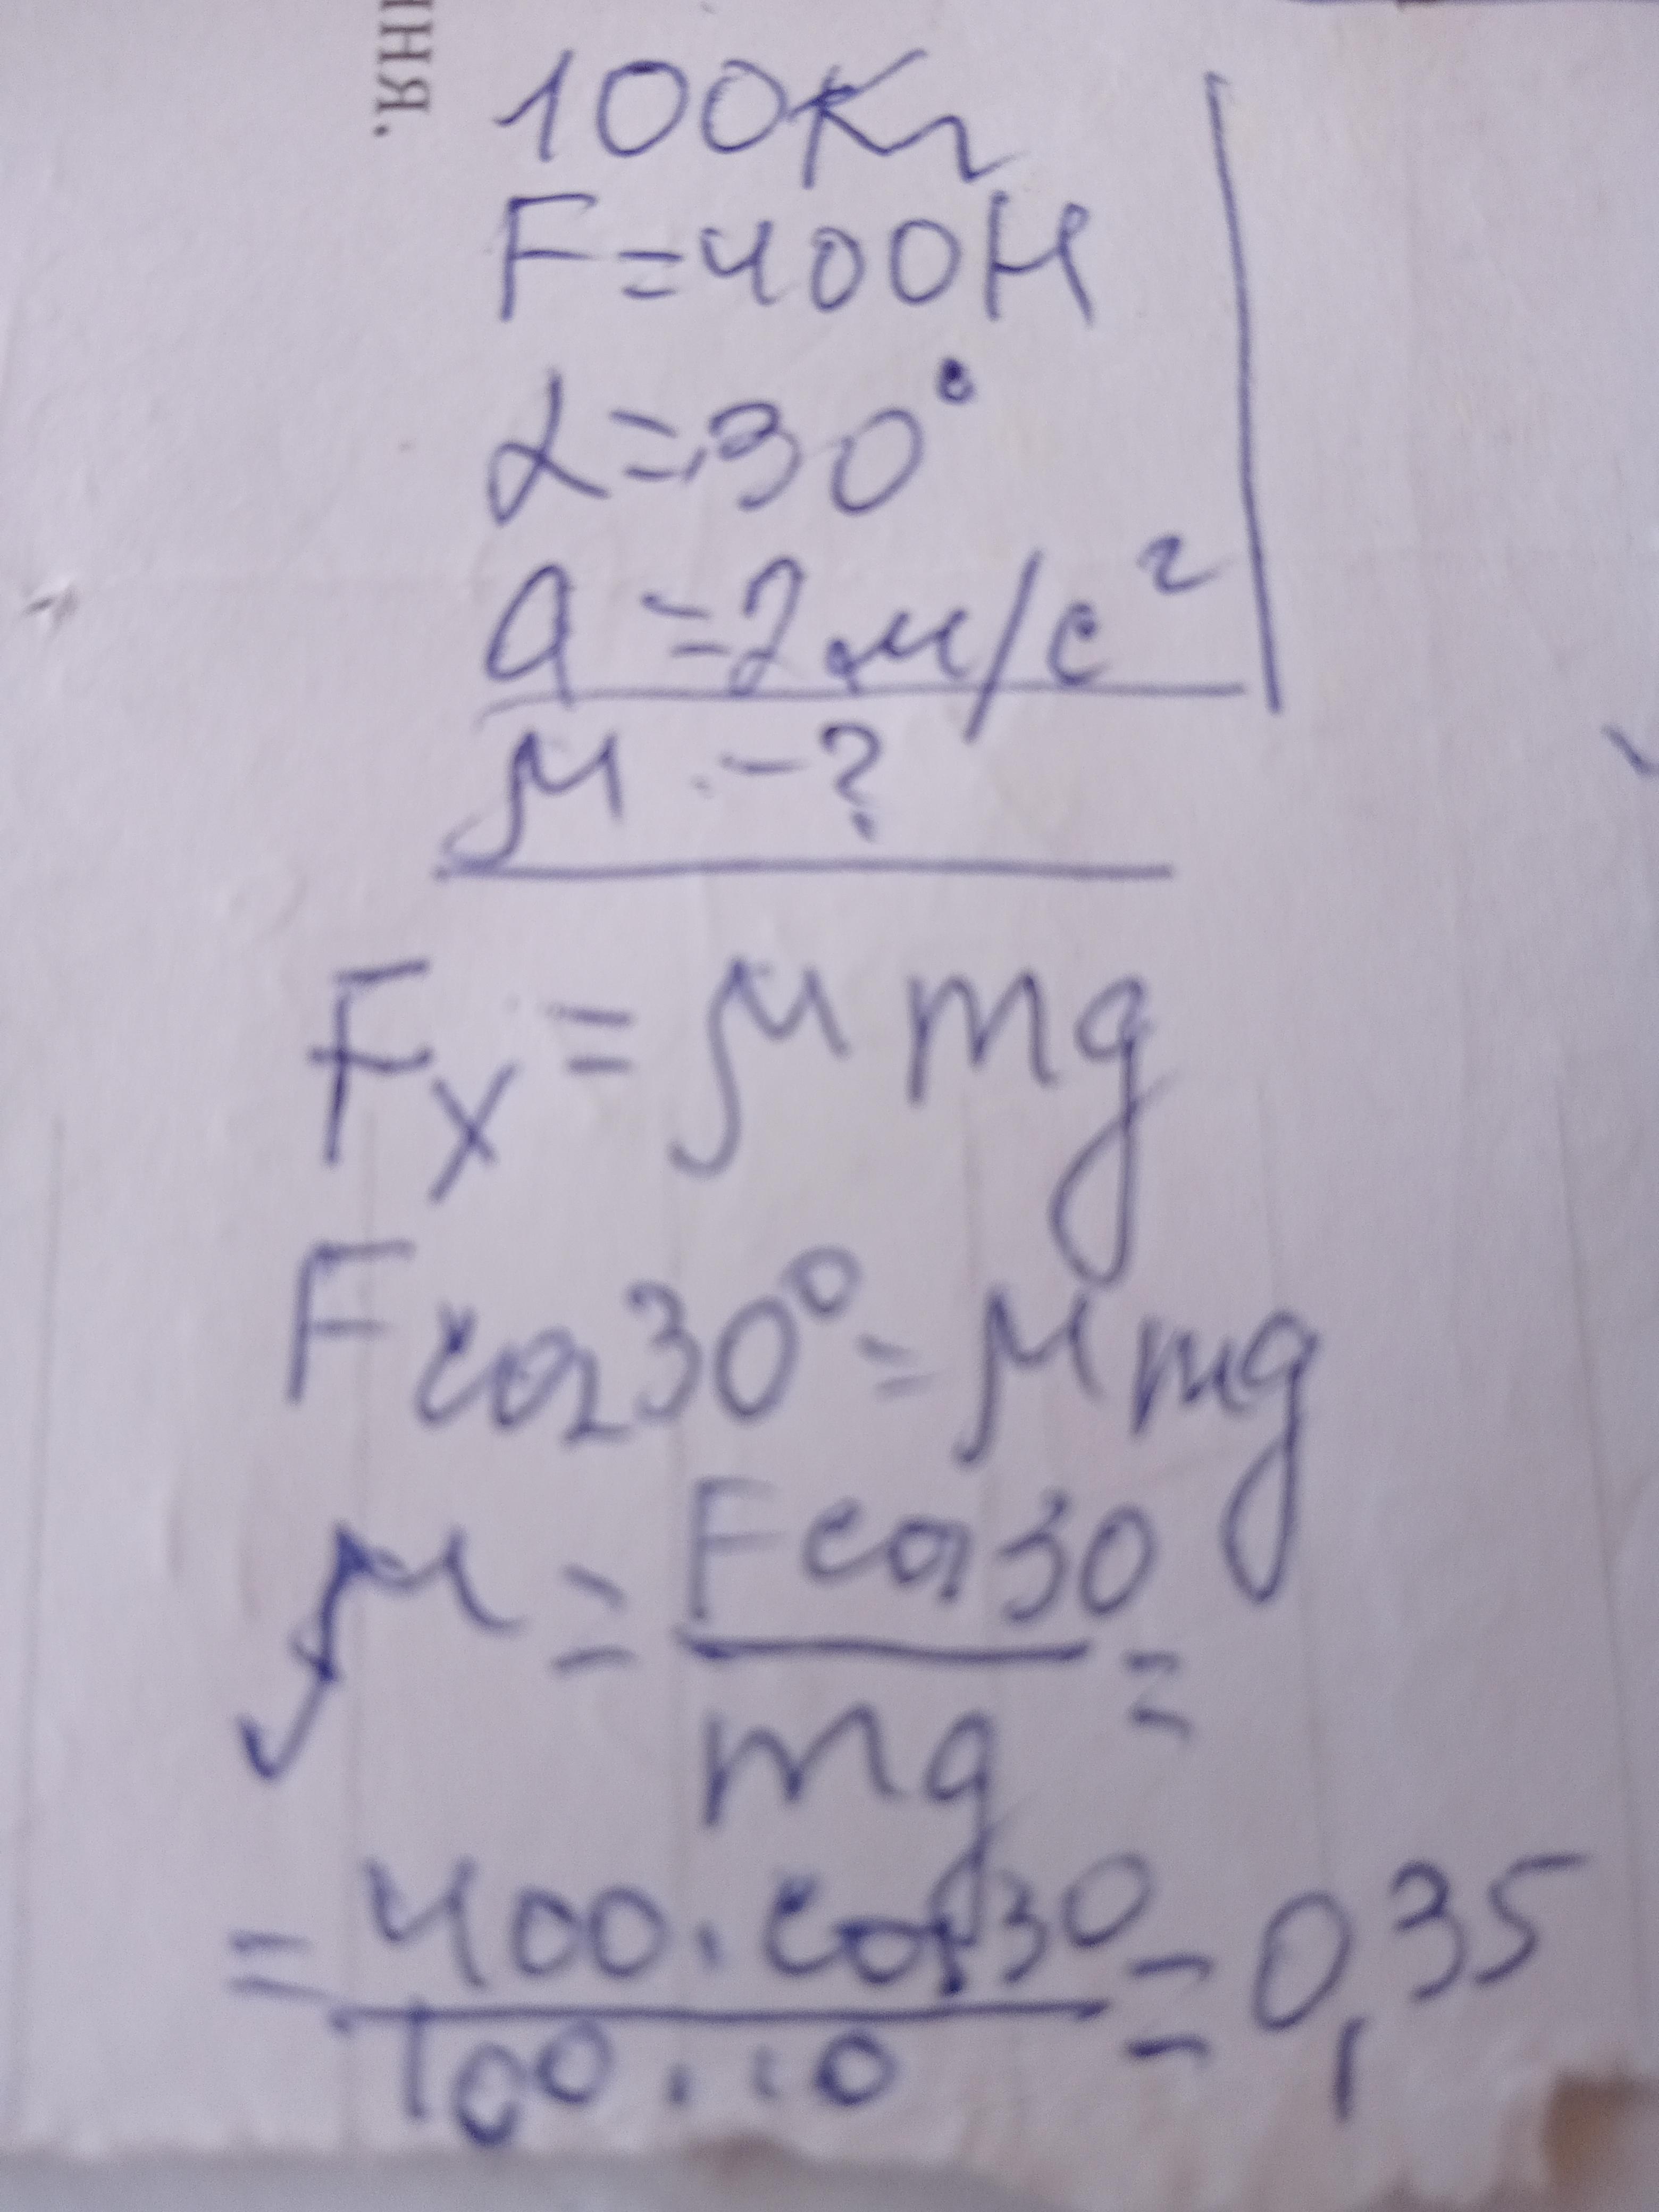 ння.
100Кг
F=400Н
α=30°
a=2м/с²
μ-?
Fx=μmg
Fcos30°=μmg
μ=Fcos30/mg=
=400·cos30/100·10=0,35